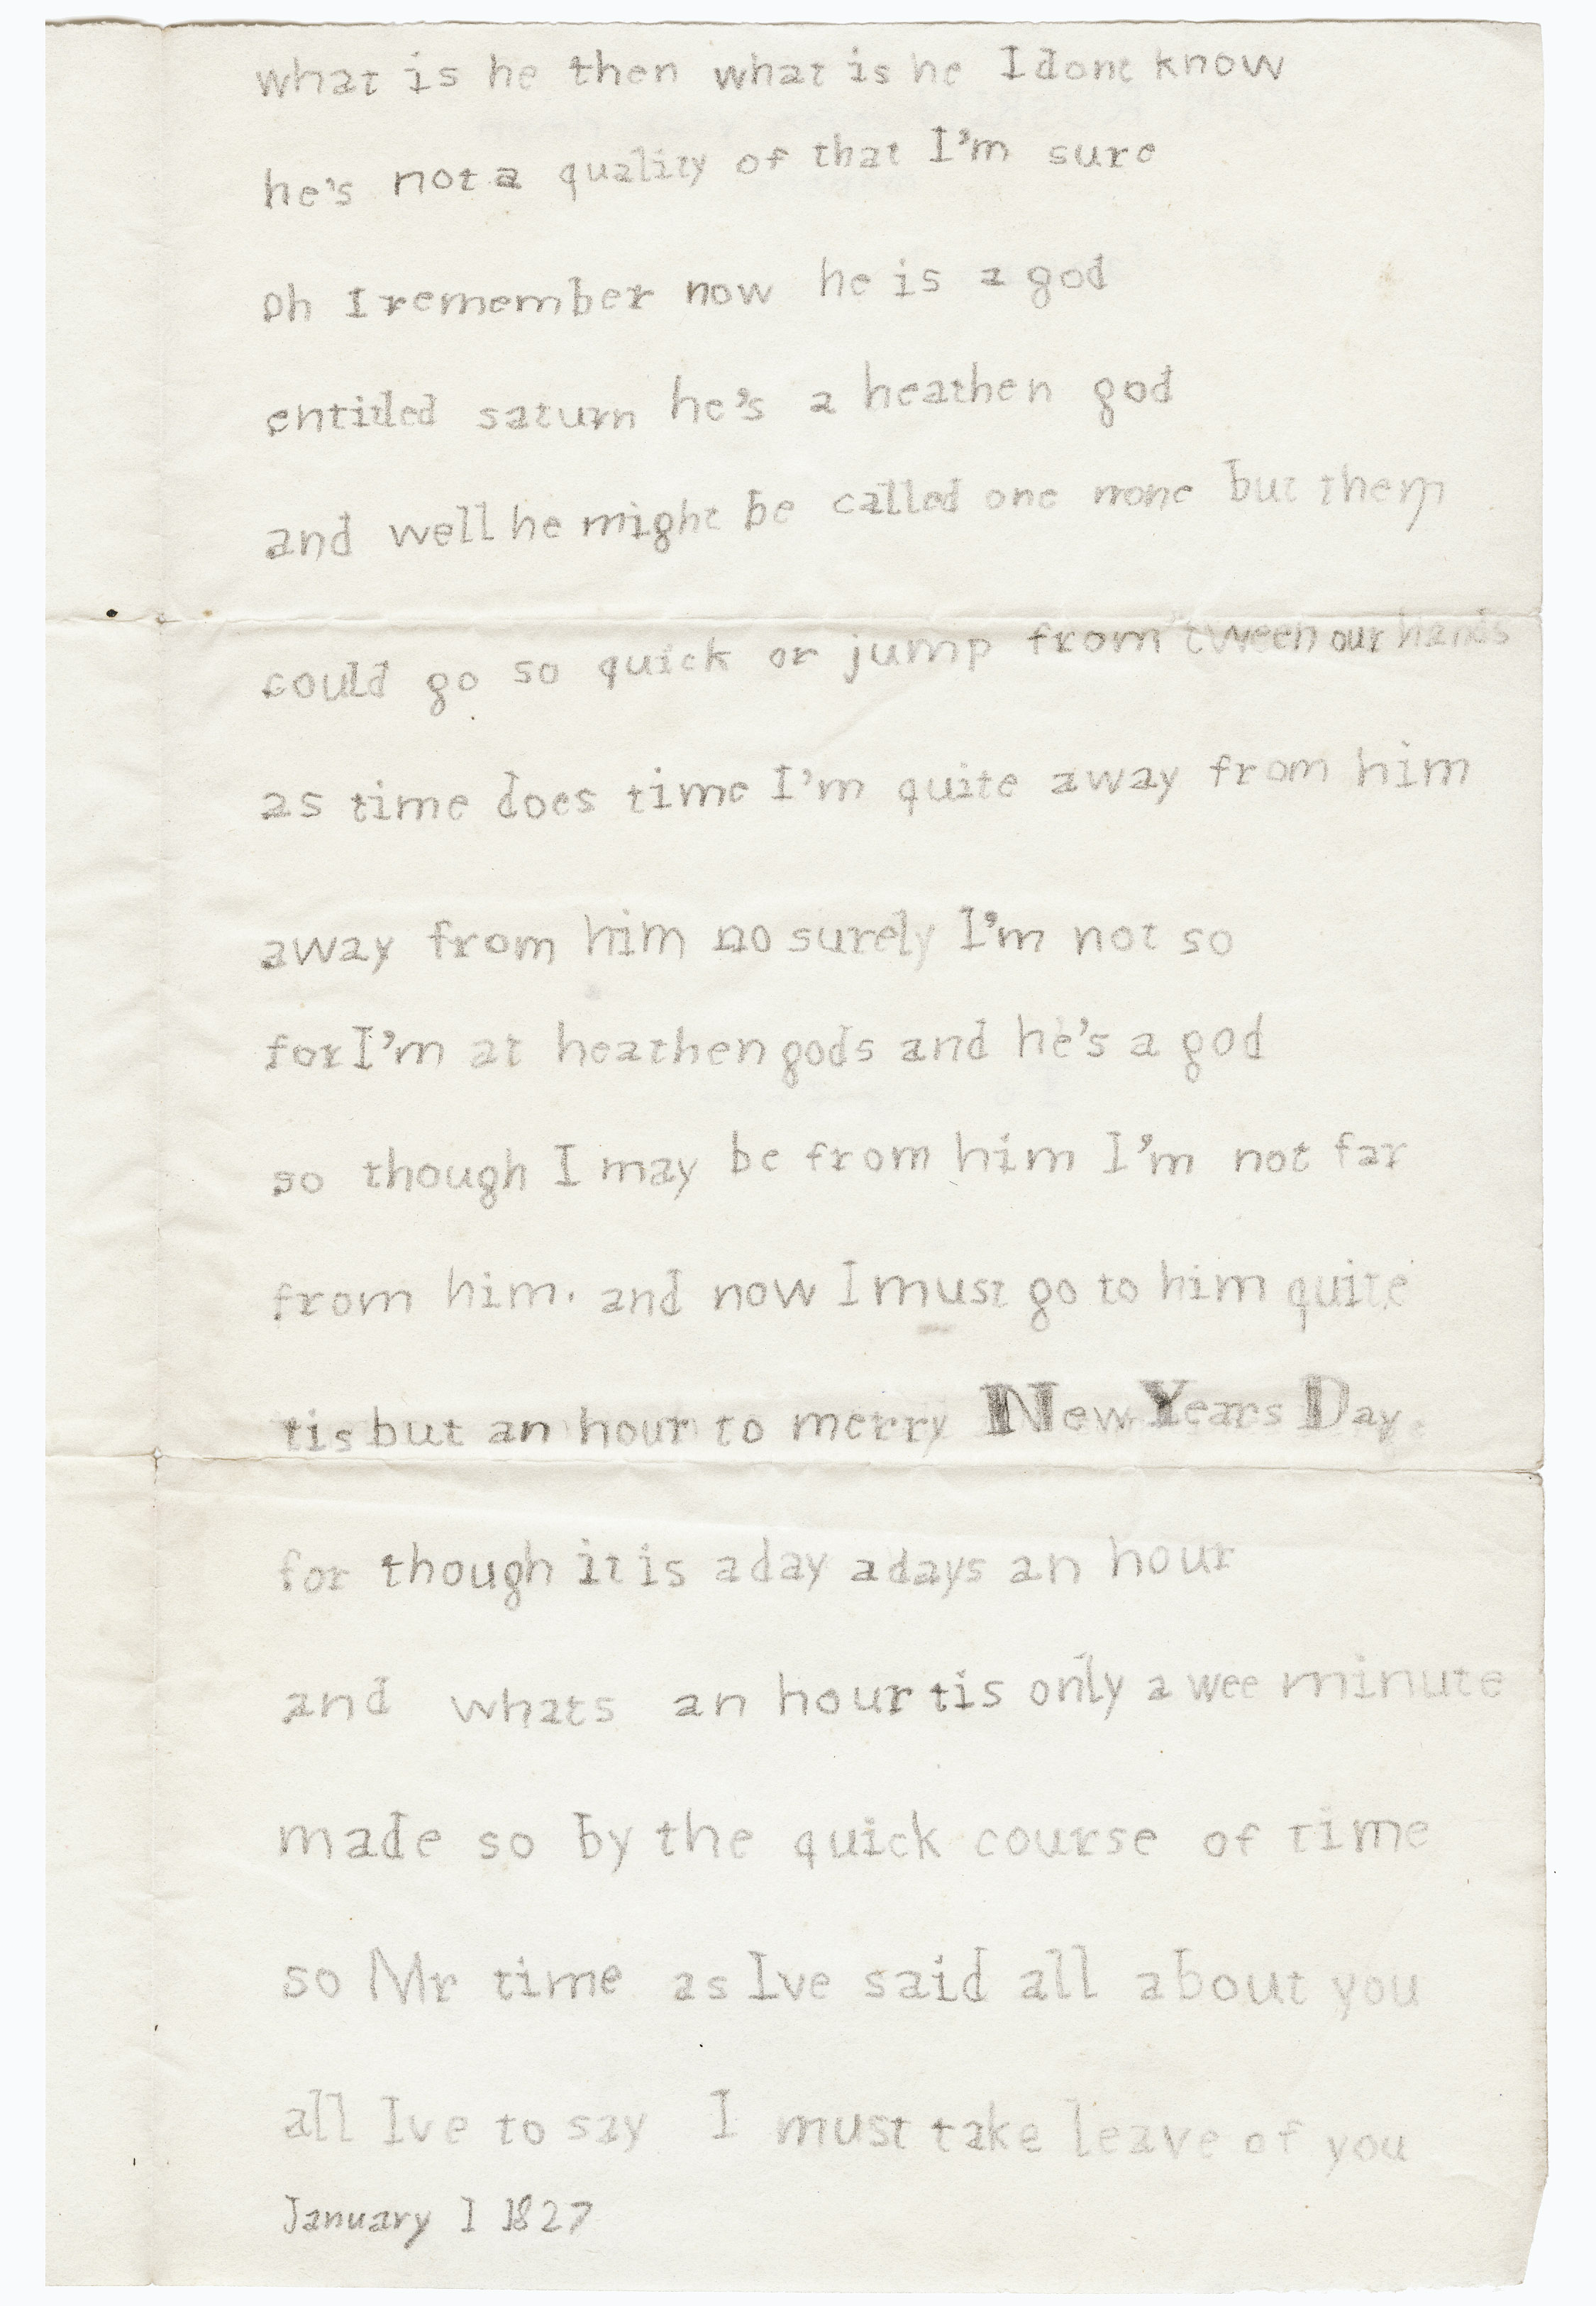 what is he then what is he I dont know
he's not a quality of that I'm sure
oh I remember now he is a god
entitled saturn he's a heathen god
and well he might be called one none but them
could go so quick or jump from 'tween our hands
as time does time I'm quite away from him
away from him no surely I'm not so
for I'm at heathen gods and he's a god
so though I may be from him I'm not far
from him. and now I must go to him quite
tis but an hour to merry New Years Day.
for though it is a day a days an hour
and whats an hour tis only a wee minute
made so by the quick course of time
so Mr time as Ive said all about you
all Ive to say I must take leave of you
January 1 1827